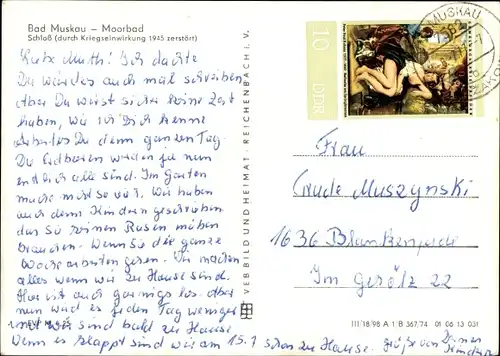 Bad Muskau – Moorbad
Schloß (durch Kriegseinwirkung 1945 zerstört)
Liebe Mutti! Ich dachte
Du würdest auch mal schreiben
Aber Du wirst sicher keine Zeit
haben, wie ich Dich kenne
arbeitest Du den ganzen Tag.
Die Erdbeeren werden ja nun
endlich alle sind. Im Garten
mache nicht so viel. Wir haben
auch den Kindern geschrieben
das sie keinen Rasen mähen
brauchen. Wenn sie die ganze
Woche arbeiten gehen. Wir machen
alles wenn wir zu Hause sind.
Hier ist auch gar nichts los. Aber
nun wird es jeden Tag weniger
und wir sind bald zu Hause
Wenn es klappt sind wir am 15.7 schon zu Hause. Grüße von Deinen
Kindern
VEB BILD UND HEIMAT · REICHENBACH I. V.
MUSKAU
10
DDR
Frau
Muszynski
1636 Blankenfelde
Im Gerölz 22
III/18/98 A 1 B 367/74 01 06 13 031